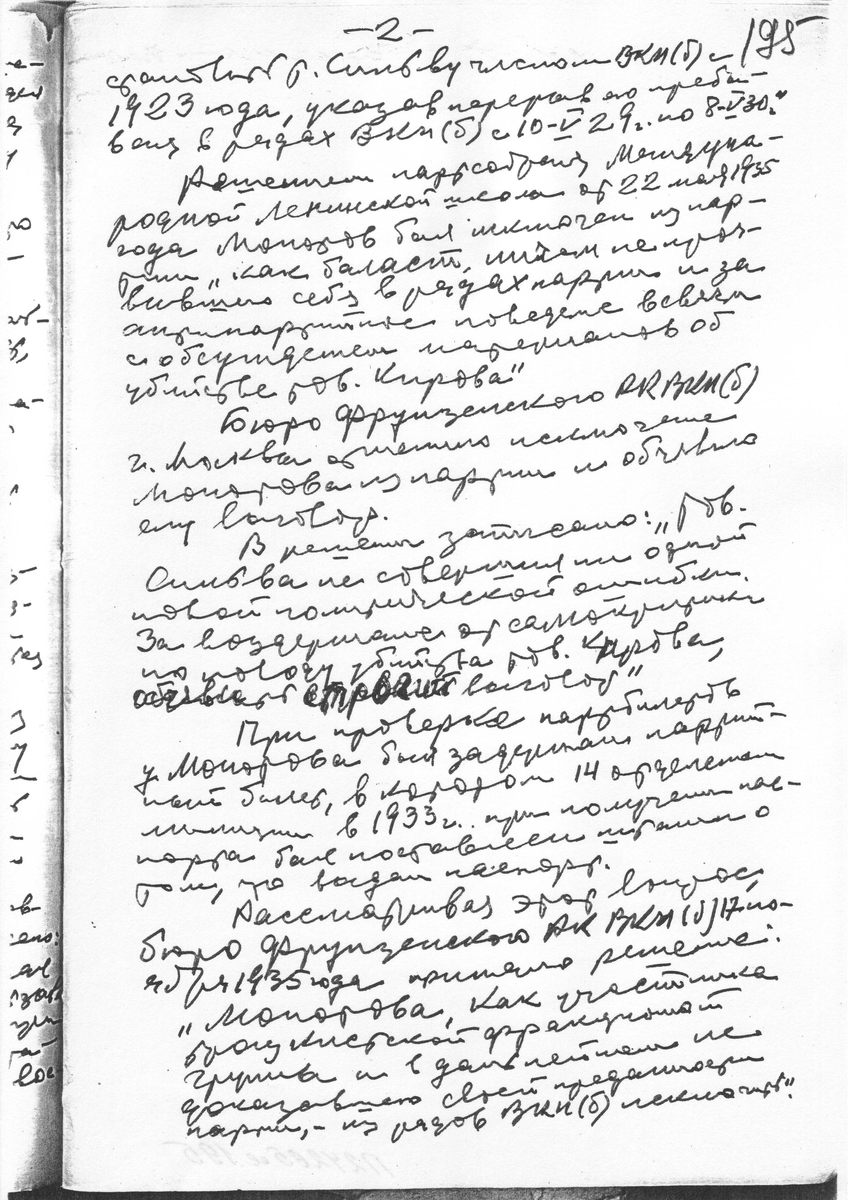 -2-
195
считать т. Сильву членом ВКП(б) с
1923 года, указав перерыв его пребы-
вания в рядах ВКП(б) с 10-V 29 г. по 8-V 30 г."
Решением партсобрания Междуна-
родной Ленинской школы от 22 мая 1935
года Молотов был исключен из пар-
тии „как баласт, ничем не проя-
вившего себя в рядах партии и за
антипартийное поведение в связи
с обсуждением материалов об
убийстве тов. Кирова"
Бюро Фрунзенского РК ВКП(б)
г. Москвы отменило исключение
из партии и объявило
ему выговор.
В решении записано: „Тов.
Сильва не совершил ни одной
новой политической ошибки.
За воздержание от самокритики
по поводу убийства тов. Кирова,
объявить строгий выговор"
При проверке партбилетов
у был задержан партий-
ный билет, в котором 14 отделением
милиции в 1933 г. при получении пас-
порта был поставлен штамп о
том, что выдан паспорт.
Рассматривая этот вопрос,
бюро Фрунзенского РК ВКП(б) 17 но-
ября 1935 года приняло решение:
как участника
троцкистской фракционной
группы и в дальнейшем не
доказавшего своей преданности
партии, - из рядов ВКП(б) исключить".